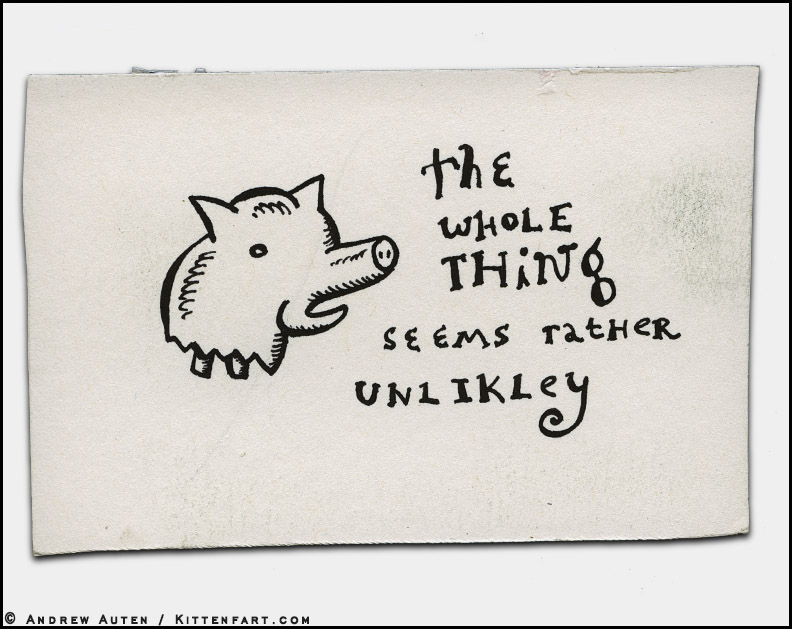 the
WHOLE
THiNg
SEEMS ratHER
UNLIKLey
© ANDREW AUTEN / KITTENFART.COM